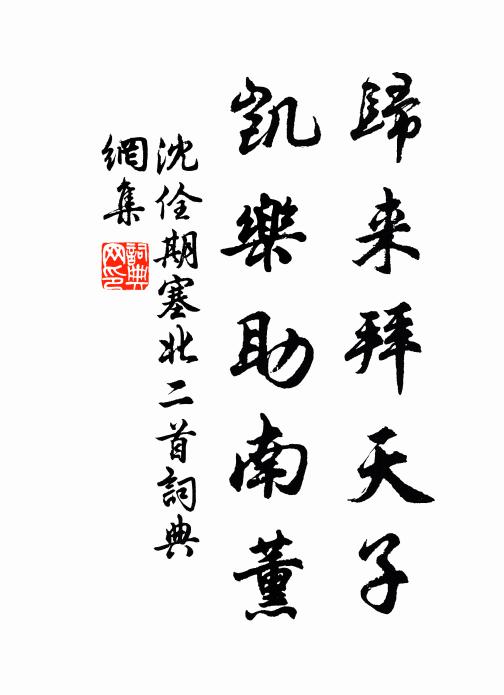 歸来拜天子
凱樂助南薰
沈佺期塞北二首詞典
網集
詞典
网印